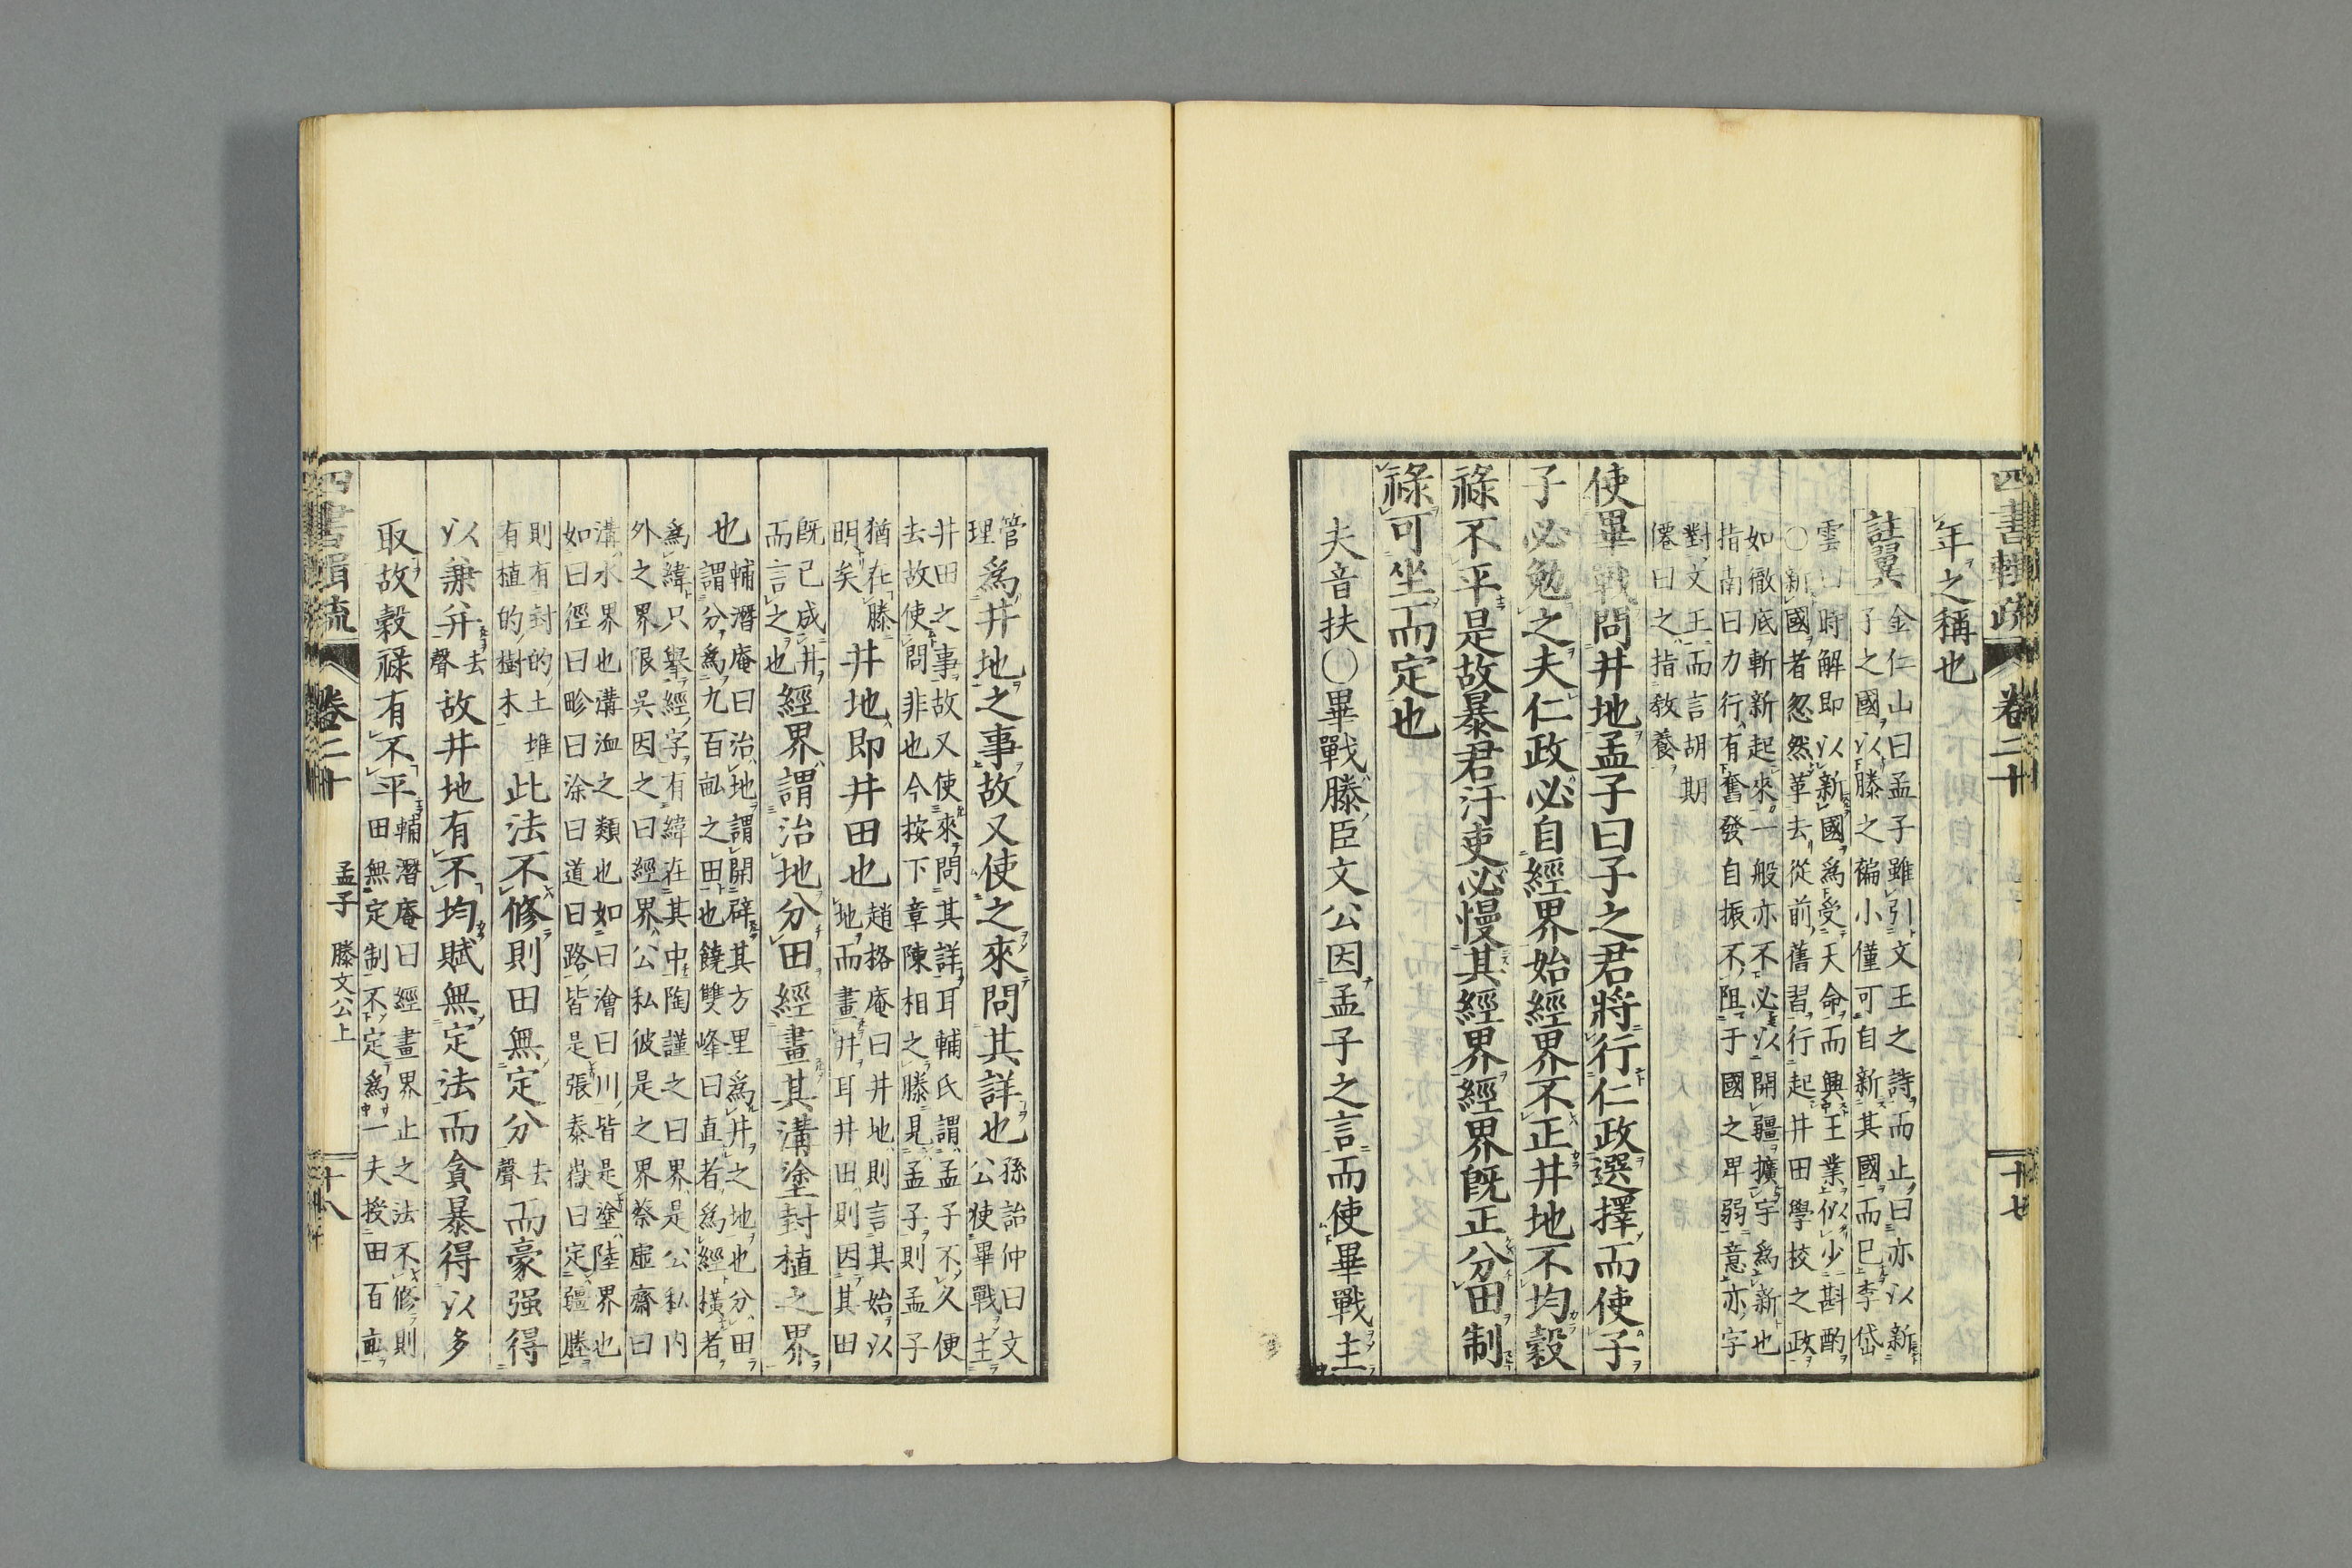 四書輯疏 卷二十 十七
年之稱也
註翼
金仁山曰孟子雖引文王之詩而止曰亦以新
子之國以滕之褊小僅可自新其國而已李岱
雲曰時解即以新國爲受天命而興王業似少斟酌
○新國者忽然革去從前舊習行起井田學校之政
如徹底斬新起來一般亦不必以開疆擴宇爲新也
指南曰力行有奮發自振不阻于國之卑弱意亦字
對文王而言胡期
僊曰之指敎養
使畢戰問井地孟子曰子之君將行仁政選擇而使子
子必勉之夫仁政必自經界始經界不正井地不均穀
祿不平是故暴君汙吏必慢其經界經界旣正分田制
祿可坐而定也
夫音扶○畢戰滕臣文公因孟子之言而使畢戰主
管
理
爲井地之事故又使之來問其詳也
孫詒仲曰文
公使畢戰主
井田之事故又使來問其詳耳輔氏謂孟子不久便
去故使問非也今按下章陳相之滕見孟子則孟子
猶在滕
明矣
井地即井田也
趙格庵曰井地則言其始以
地而畫井耳井田則因其田
旣已成井
而言之也
經界謂治地分田經畫其溝塗封植之界
也
輔潛庵曰治地謂開辟其方里爲井之地也分田
謂分爲九百畝之田也饒雙峰曰直者爲經橫者
爲緯只舉經字有緯在其中陶謹之曰界是公私內
外之界限吳因之曰經界公私彼是之界蔡虛齋曰
溝水界也溝洫之類也如曰澮曰川皆是塗陸界也
如曰徑曰畛曰涂曰道曰路皆是張泰嶽曰定疆塍
則有封的土堆
有植的樹木
此法不修則田無定分
去
聲
而豪强得
以兼并
去
聲
故井地有不均賦無定法而貪暴得以多
取故穀祿有不平
輔潛庵曰經畫界止之法不修則
田無定制不定爲一夫授田百畝
四書輯疏 卷二十 孟子 滕文公上 十八